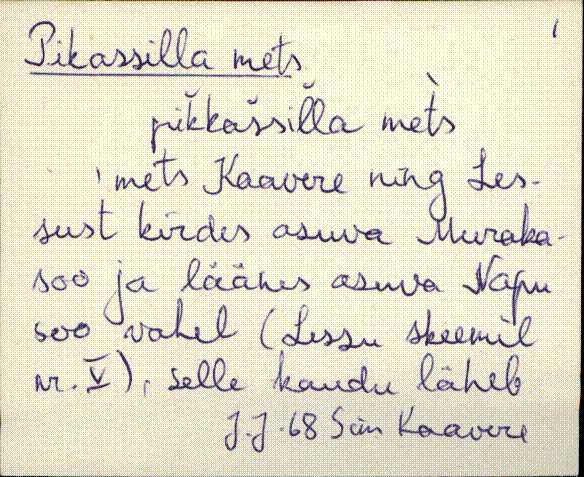 1
Pikassilla mets
pikkašsilla mets
'mets Kaavere ning Les-
sust kirdes asuva Muraka-
soo ja läänes asuva Napu
soo vahel (Lessu skeemil
nr. V), selle kaudu läheb
J.J. 68 Sim Kaavere